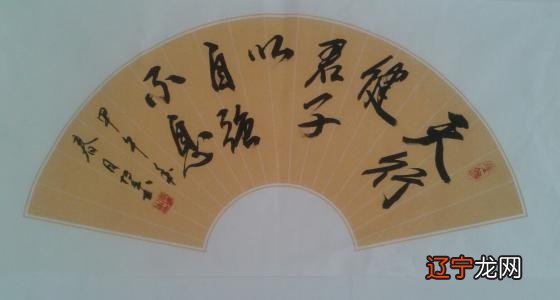 天行
健
君子
以
自强
不息
甲午年
春月
辽宁龙网